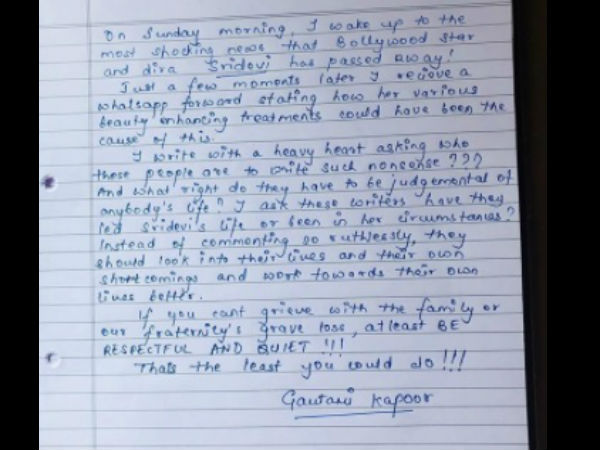 On Sunday morning, I wake up to the
most shocking news that Bollywood star
and diva Sridevi has passed away!
Just a few moments later I recieve a
whatsapp forward stating how her various
beauty enhancing treatments could have been the
cause of this.
I write with a heavy heart asking who
these people are to write such nonsense???
And what right do they have to be judgemental of
anybody's life? I ask these writers have they
led Sridevi's life or been in her circumstances?
Instead of commenting so ruthlessly, they
should look into their lives and their own
shortcomings and work towards their own
lives better.
If you cant grieve with the family or
our fraternity's grave loss, atleast BE
RESPECTFUL AND QUIET!!!
Thats the least you could do!!!
Gautami Kapoor